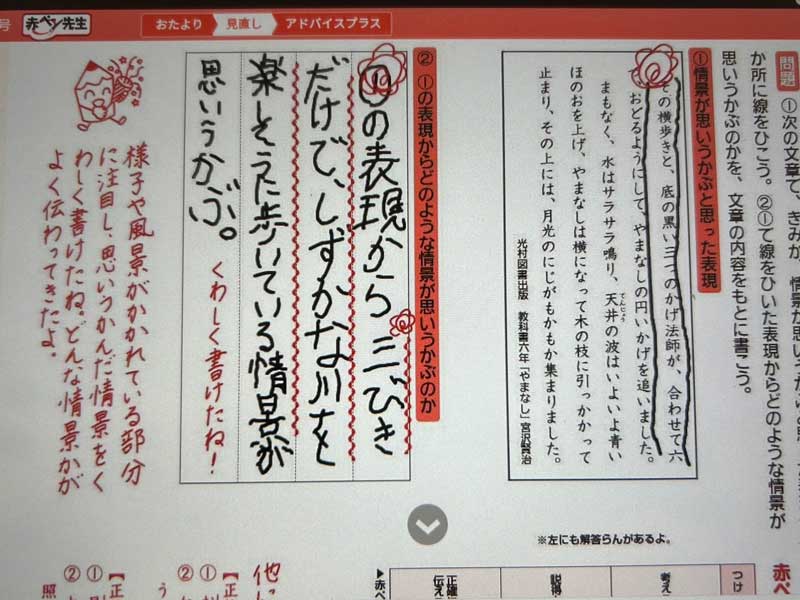 号
赤ペン先生
おたより
見直し
アドバイスプラス
問題
①次の文章で、きみが、情景が思いうかぶ
か所に線をひこう。②①で線をひいた表現からどのような情景が
思いうかぶのかを、文章の内容をもとに書こう。
①情景が思いうかぶと思った表現
その横歩きと、底の黒い三つのかげ法師が、合わせて六
おどるようにして、やまなしの円いかげを追いました。
まもなく、水はサラサラ鳴り、天井の波はいよいよ青い
てんじょう
ほのおを上げ、やまなしは横になって木の枝に引っかかって
止まり、その上には、月光のにじがもかもか集まりました。
光村図書出版 教科書六年「やまなし」宮沢賢治
② ①の表現からどのような情景が思いうかぶのか
①の表現から三びき
だけで、しずかな川を
楽しそうに歩いている情景が
思いうかぶ。
くわしく書けたね!
様子や風景がかかれている部分
に注目し、思いうかんだ情景をく
わしく書けたね。どんな情景かが
よく伝わってきたよ。
※左にも解答らんがあるよ。
赤ペ
つけ
考え
説得
正確
伝え
▶赤ペ
他に
【正
①
②
う
【正
①
②
照